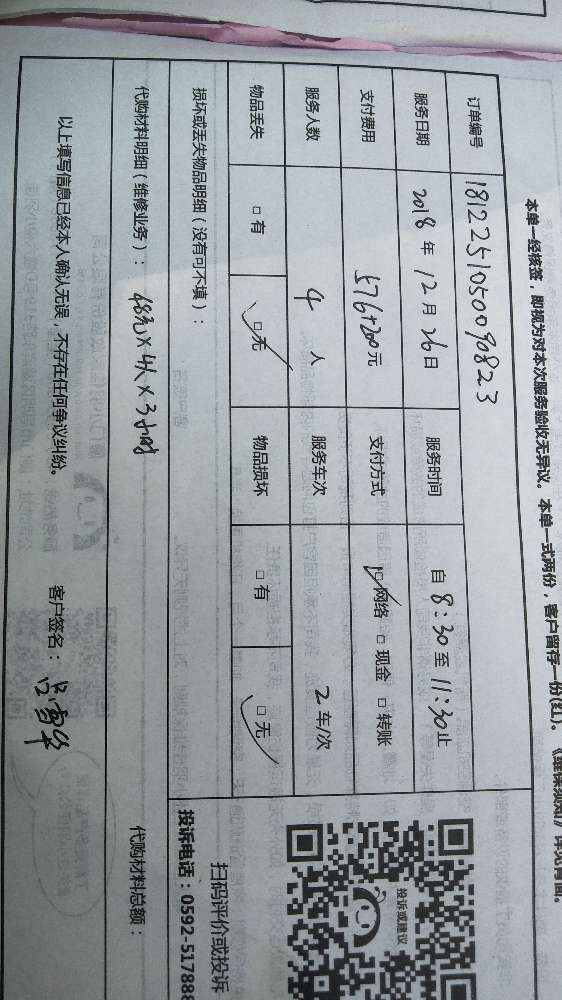 本单一经核签，即视为对本次服务验收无异议。本单一式两份，客户留存一份(红)。《维保须知》详见背面。
订单编号 1812251050090823
服务日期 2018年12月26日 服务时间 自8:30至11:30止
支付费用 576+200元 支付方式 □网络 □现金 □转账
服务人数 4人 服务车次 2车/次
物品丢失 □有 □无 物品损坏 □有 □无
损坏或丢失物品明细（没有可不填）：
代购材料明细（维修业务）： 48元×4人×3小时 代购材料总额：
以上填写信息已经本人确认无误，不存在任何争议纠纷。 客户签名：
投诉或建议
扫码评价或投诉
投诉电话：0592-517888